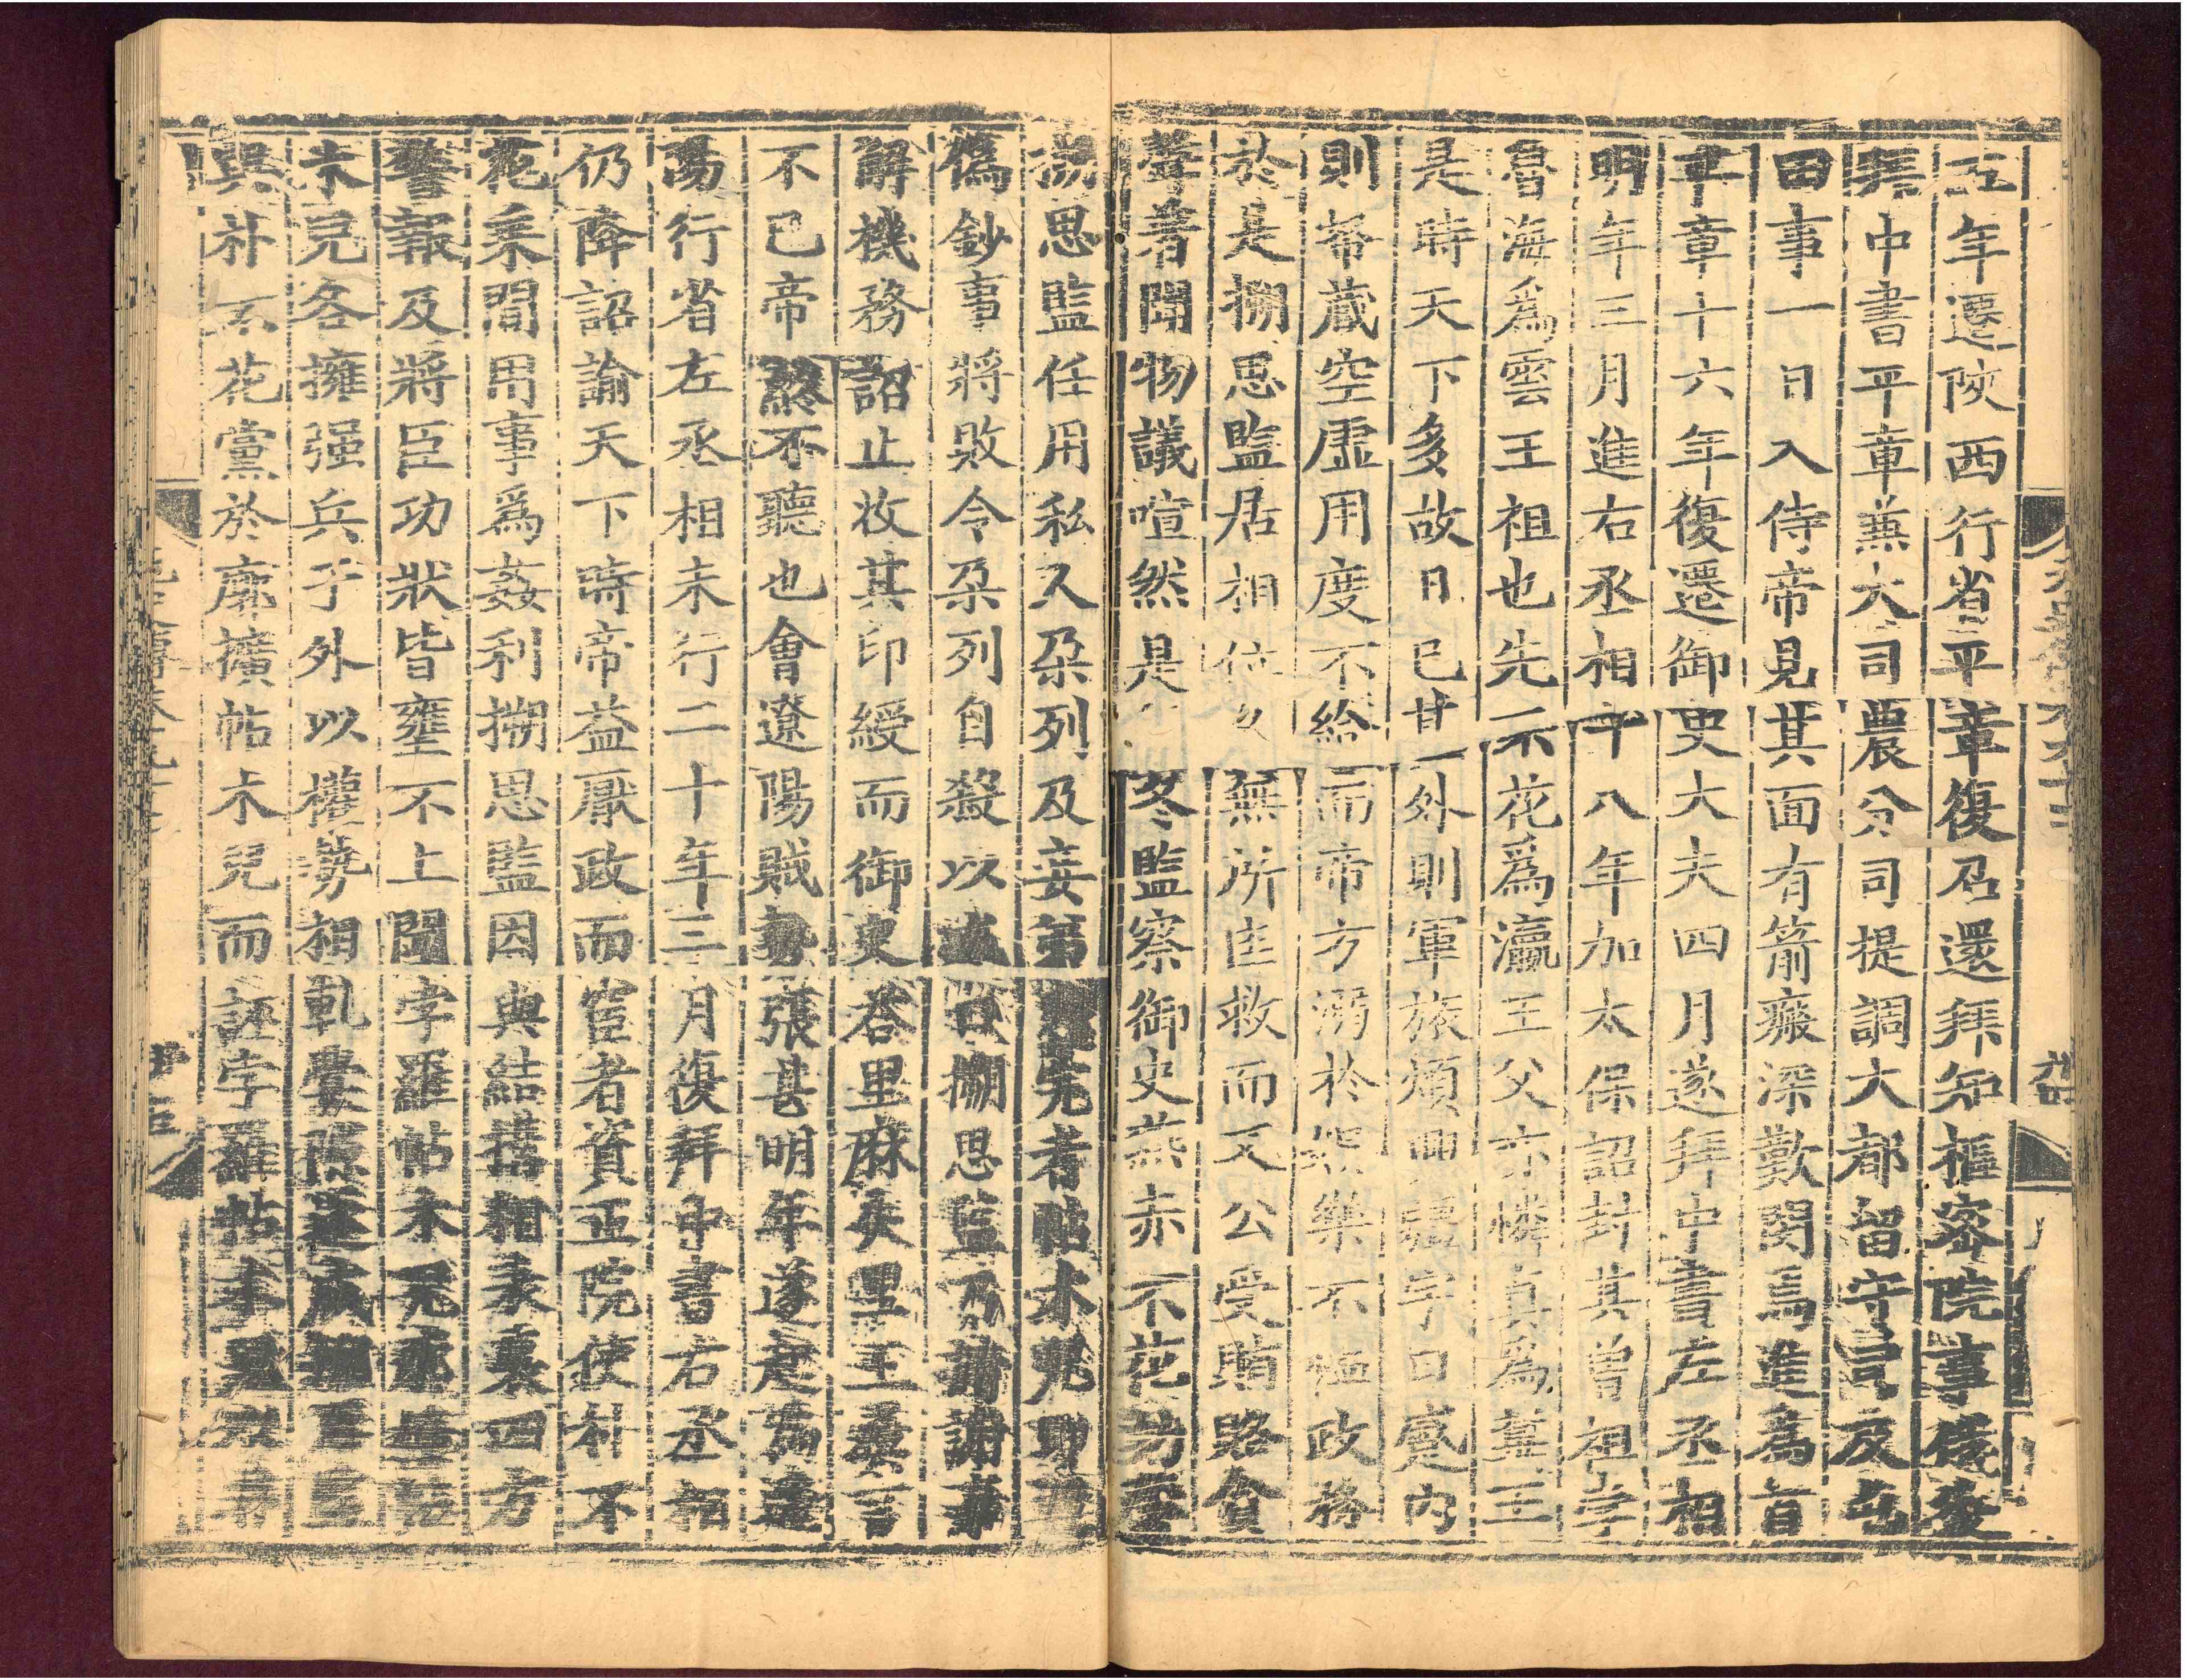 五年遷陝西行省平章復召還拜知樞密院事俊後
拜中書平章兼大司農分司提調大都留守司及屯
田事一日入侍帝見其面有箭瘢深歎閔焉進為首
平章十六年復遷御史大夫四月遂拜中書左丞相
明年三月進右丞相十八年加太保詔封其曾祖孛
魯海爲雲王祖也先不花爲瀛王父亦憐真爲冀王
是時天下多故日已甚外則軍旅煩疆宇日蹙內
則帑藏空虛用度不給而帝方溺於樂不恤政務
於是搠思監居相位無所匡救而又公受賄賂貪
聲著聞物議喧然是冬監察御史燕赤不花劾
搠思監任用私人朶列及妾弟完者帖木兒印
偽鈔事將敗令朶列自殺以搠思監乃請謝事
解機務詔止收其印綬而御史荅里麻失里王彞言
不已帝終不聽也會遼陽賊勢張甚明年遂起爲遼
陽行省左丞相未行二十年三月復拜中書右丞相
仍降詔諭天下時帝益厭政而宦者資正院使朴不
花乘間用事爲姦利搠思監因與結搆相表裏四方
警報及將臣功狀皆壅不上聞孛羅帖木兒
木兒各擁强兵于外以權勢相軋釁隙遂成
與朴不花黨於廓擴帖木兒而誣孛羅帖木